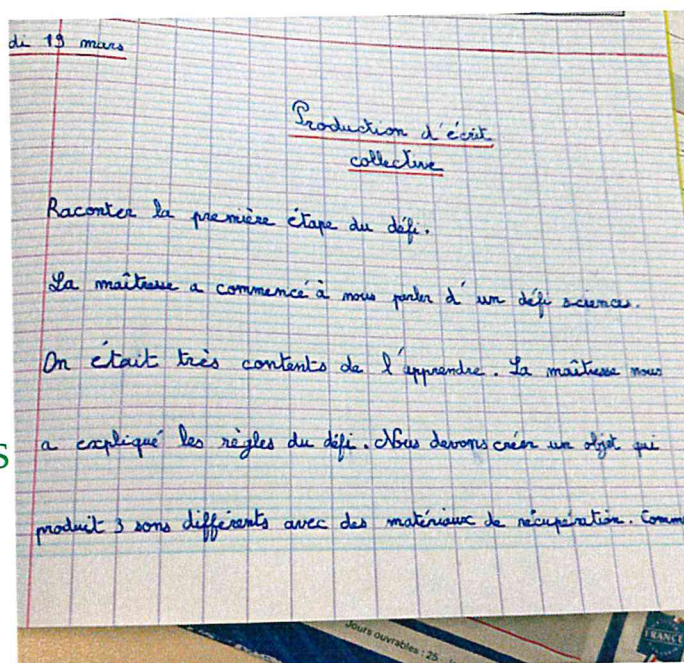 di 19 mars
Production d'écrit
collective
Raconter la première étape du défi.
La maîtresse a commencé à nous parler d'un défi sciences.
On était très contents de l'apprendre. La maîtresse nous
a expliqué les règles du défi. Nous devons créer un objet qui
S
produit 3 sons différents avec des matériaux de récupération. Comm
Jours ouvrables : 25
FRANCE